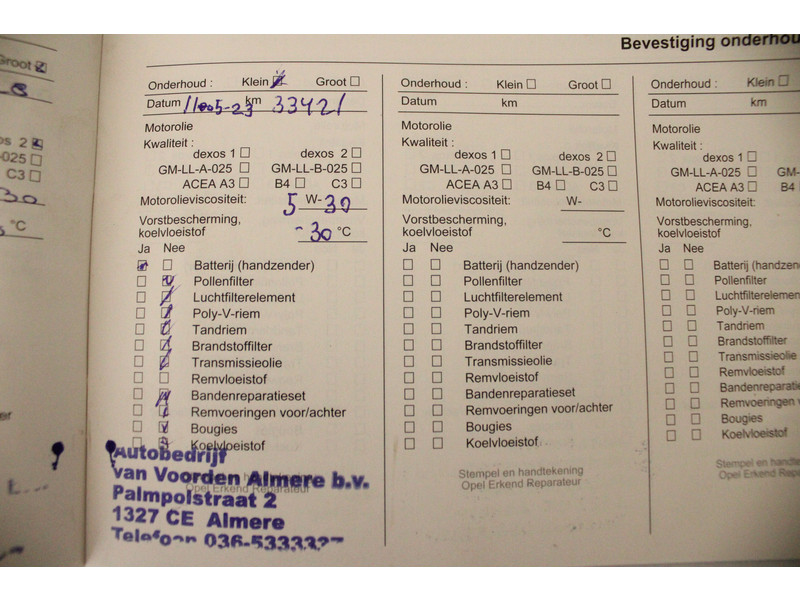 Bevestiging onderhou
Groot
dexos 2
-025
C3
30
°C
Onderhoud : Klein Groot
Datum 11-05-23 km 33421
Motorolie
Kwaliteit :
dexos 1 dexos 2
GM-LL-A-025 GM-LL-B-025
ACEA A3 B4 C3
Motorolieviscositeit: 5 W- 30
Vorstbescherming,
koelvloeistof -30 °C
Ja Nee
Batterij (handzender)
Pollenfilter
Luchtfilterelement
Poly-V-riem
Tandriem
Brandstoffilter
Transmissieolie
Remvloeistof
Bandenreparatieset
Remvoeringen voor/achter
Bougies
Koelvloeistof
Opel Erkend Reparateur
Autobedrijf
van Voorden Almere b.v.
Palmpolstraat 2
1327 CE Almere
Telefoon 036-5333327
Onderhoud : Klein Groot
Datum km
Motorolie
Kwaliteit :
dexos 1 dexos 2
GM-LL-A-025 GM-LL-B-025
ACEA A3 B4 C3
Motorolieviscositeit: W-
Vorstbescherming,
koelvloeistof °C
Ja Nee
Batterij (handzender)
Pollenfilter
Luchtfilterelement
Poly-V-riem
Tandriem
Brandstoffilter
Transmissieolie
Remvloeistof
Bandenreparatieset
Remvoeringen voor/achter
Bougies
Koelvloeistof
Stempel en handtekening
Opel Erkend Reparateur
Onderhoud : Klein
Datum km
Motorolie
Kwaliteit :
dexos 1
GM-LL-A-025 GM-
ACEA A3 B4
Motorolieviscositeit:
Vorstbescherming,
koelvloeistof
Ja Nee
Batterij (handzen
Pollenfilter
Luchtfilterelemen
Poly-V-riem
Tandriem
Brandstoffilter
Transmissieolie
Remvloeistof
Bandenreparatie
Remvoeringen v
Bougies
Koelvloeistof
Stempel en handteken
Opel Erkend Repa